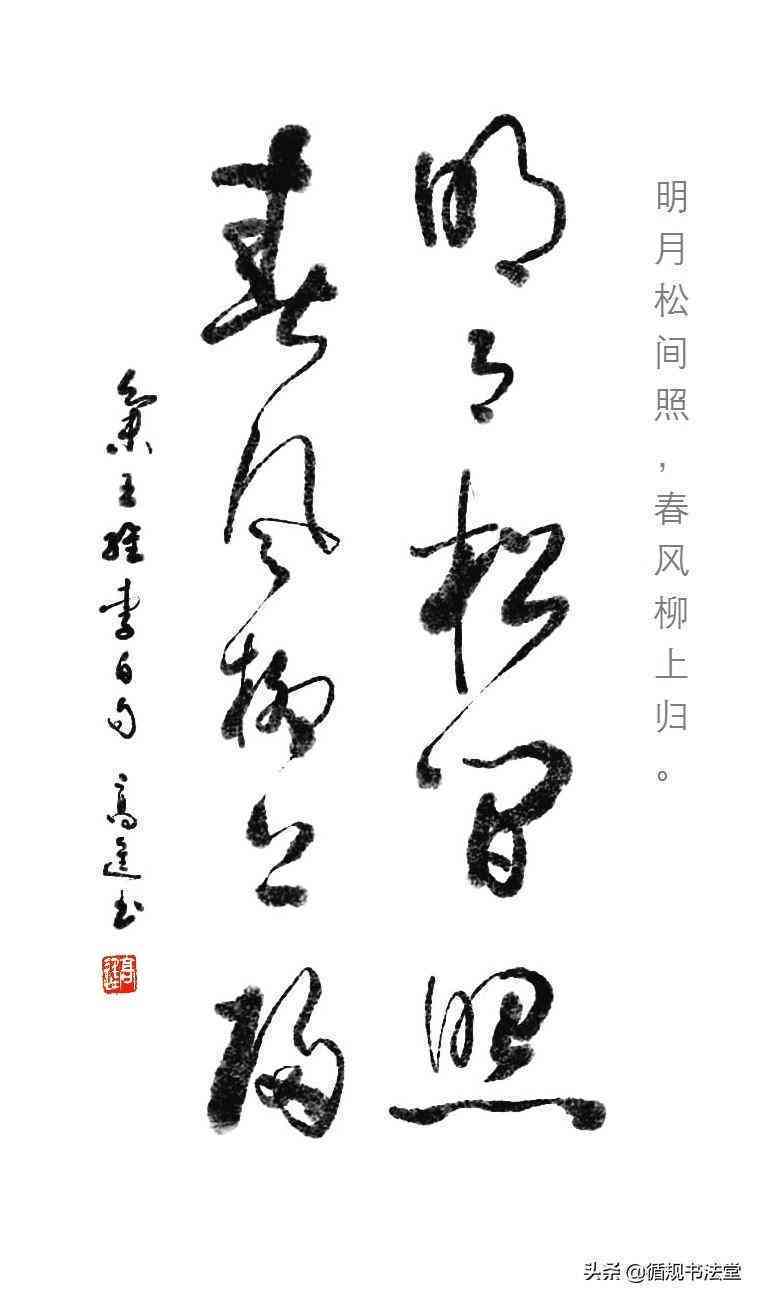 明月松间照，春风柳上归。
明月松間照
春風柳上歸
集王維李白句 高進书
头条 @循规书法堂